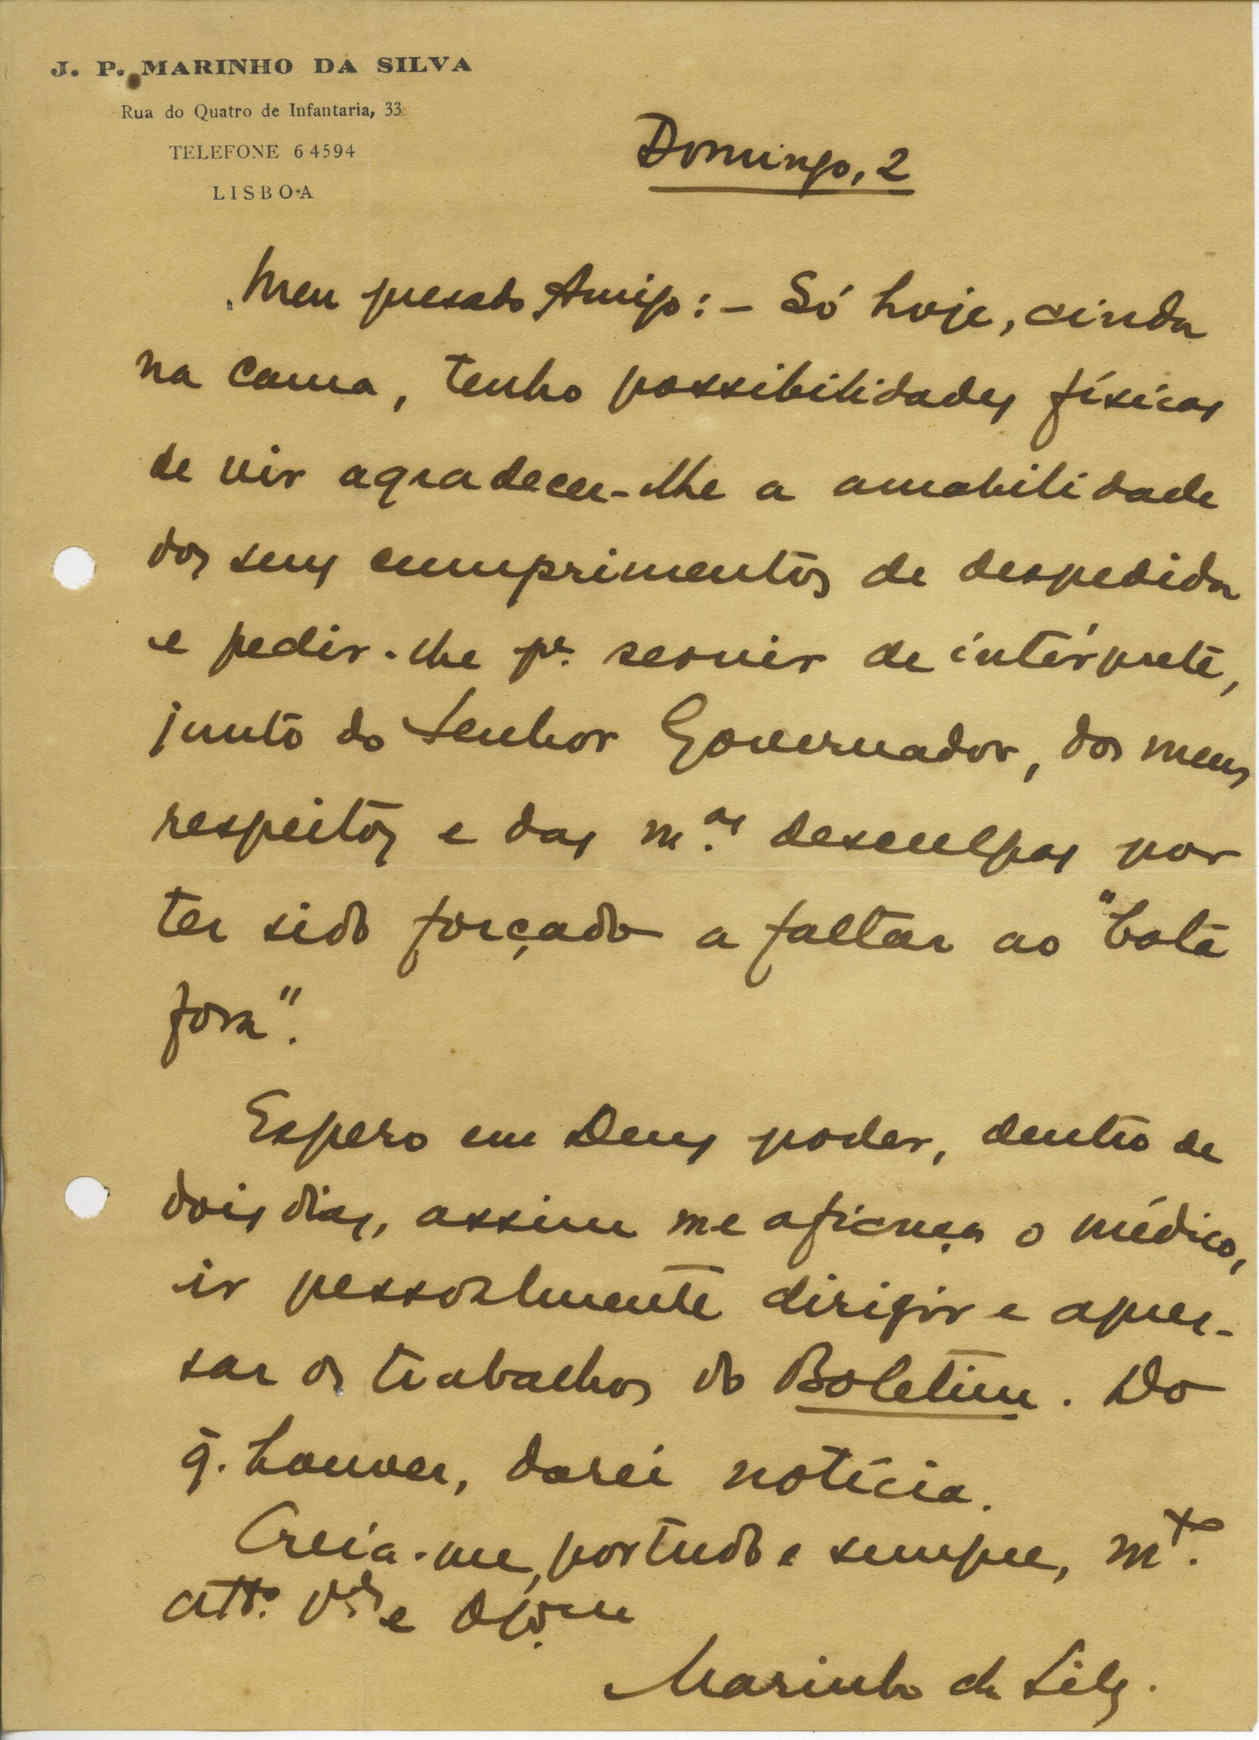 J. P. MARINHO DA SILVA
Rua do Quatro de Infantaria, 33
TELEFONE 6 4594
LISBOA
Domingo, 2
Meu presado Amigo: – Só hoje, ainda
na cama, tenho possibilidades físicas
de vir agradecer-lhe a amabilidade
dos seus cumprimentos de despedida
e pedir-lhe pª. servir de intérprete,
junto do Senhor Governador, dos meus
respeitos e das m.as desculpas por
ter sido forçado a faltar ao "bota
fora".
Espero em Deus poder, dentro de
dois dias, assim me afiança o médico,
ir pessoalmente dirigir e apres-
sar os trabalhos do Boletim. Do
q. houver, darei notícia.
Creia-me, por tudo e sempre, mto.
att.o e
Marinho da Silva.